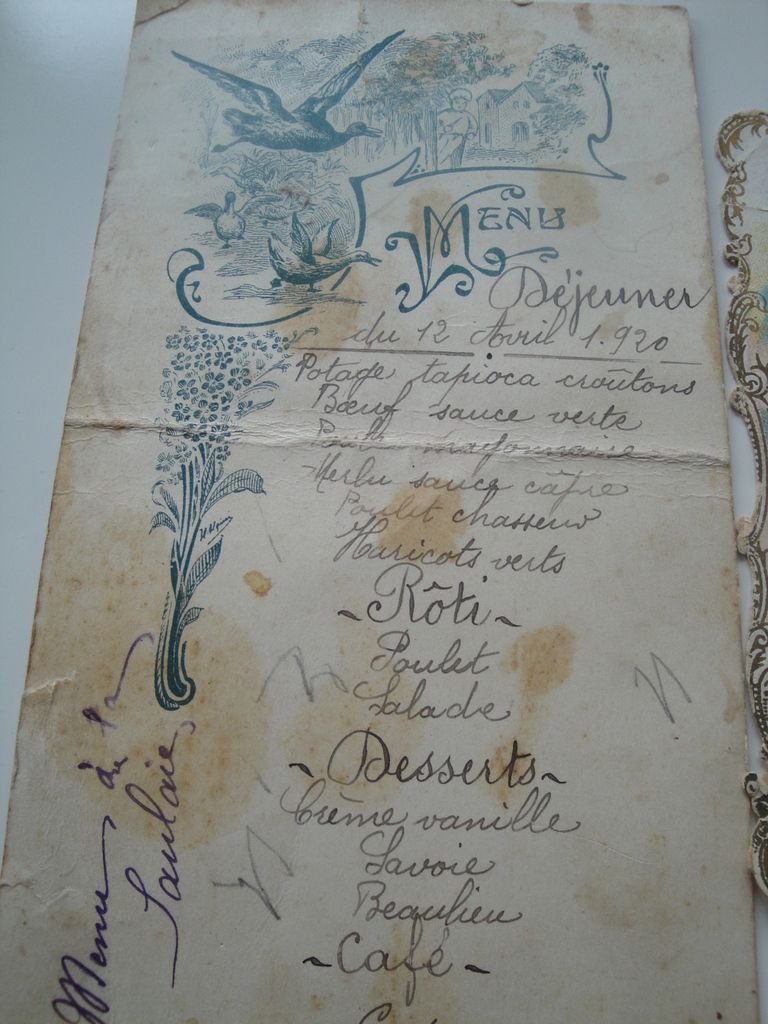 MENU
Déjeuner
du 12 Avril 1.920
Potage tapioca croûtons
Bœuf sauce verte
mayonnaise
Merlu sauce câpre
Poulet chasseur
Haricots verts
- Rôti -
Poulet
Salade
- Desserts -
Crème vanille
Savoie
Beaulieu
- Café -
Menu de la
Saulaie